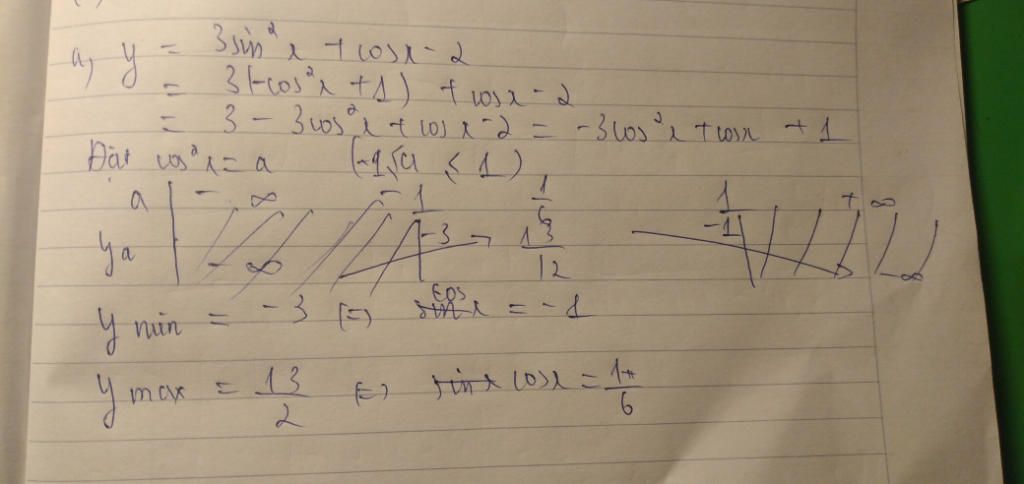 a, y = 3sin²x + cosx - 2
= 3(-cos²x + 1) + cosx - 2
= 3 - 3cos²x + cosx - 2 = -3cos²x + cosx + 1
Đặt cos²x = a (-1 ≤ a ≤ 1)
a -∞ -1 1/6 1 +∞
ya -∞ -3 13/12 -1 -∞
y min = -3 (=) cos x = -1
y max = 13/2 (=) cosx = 1/6